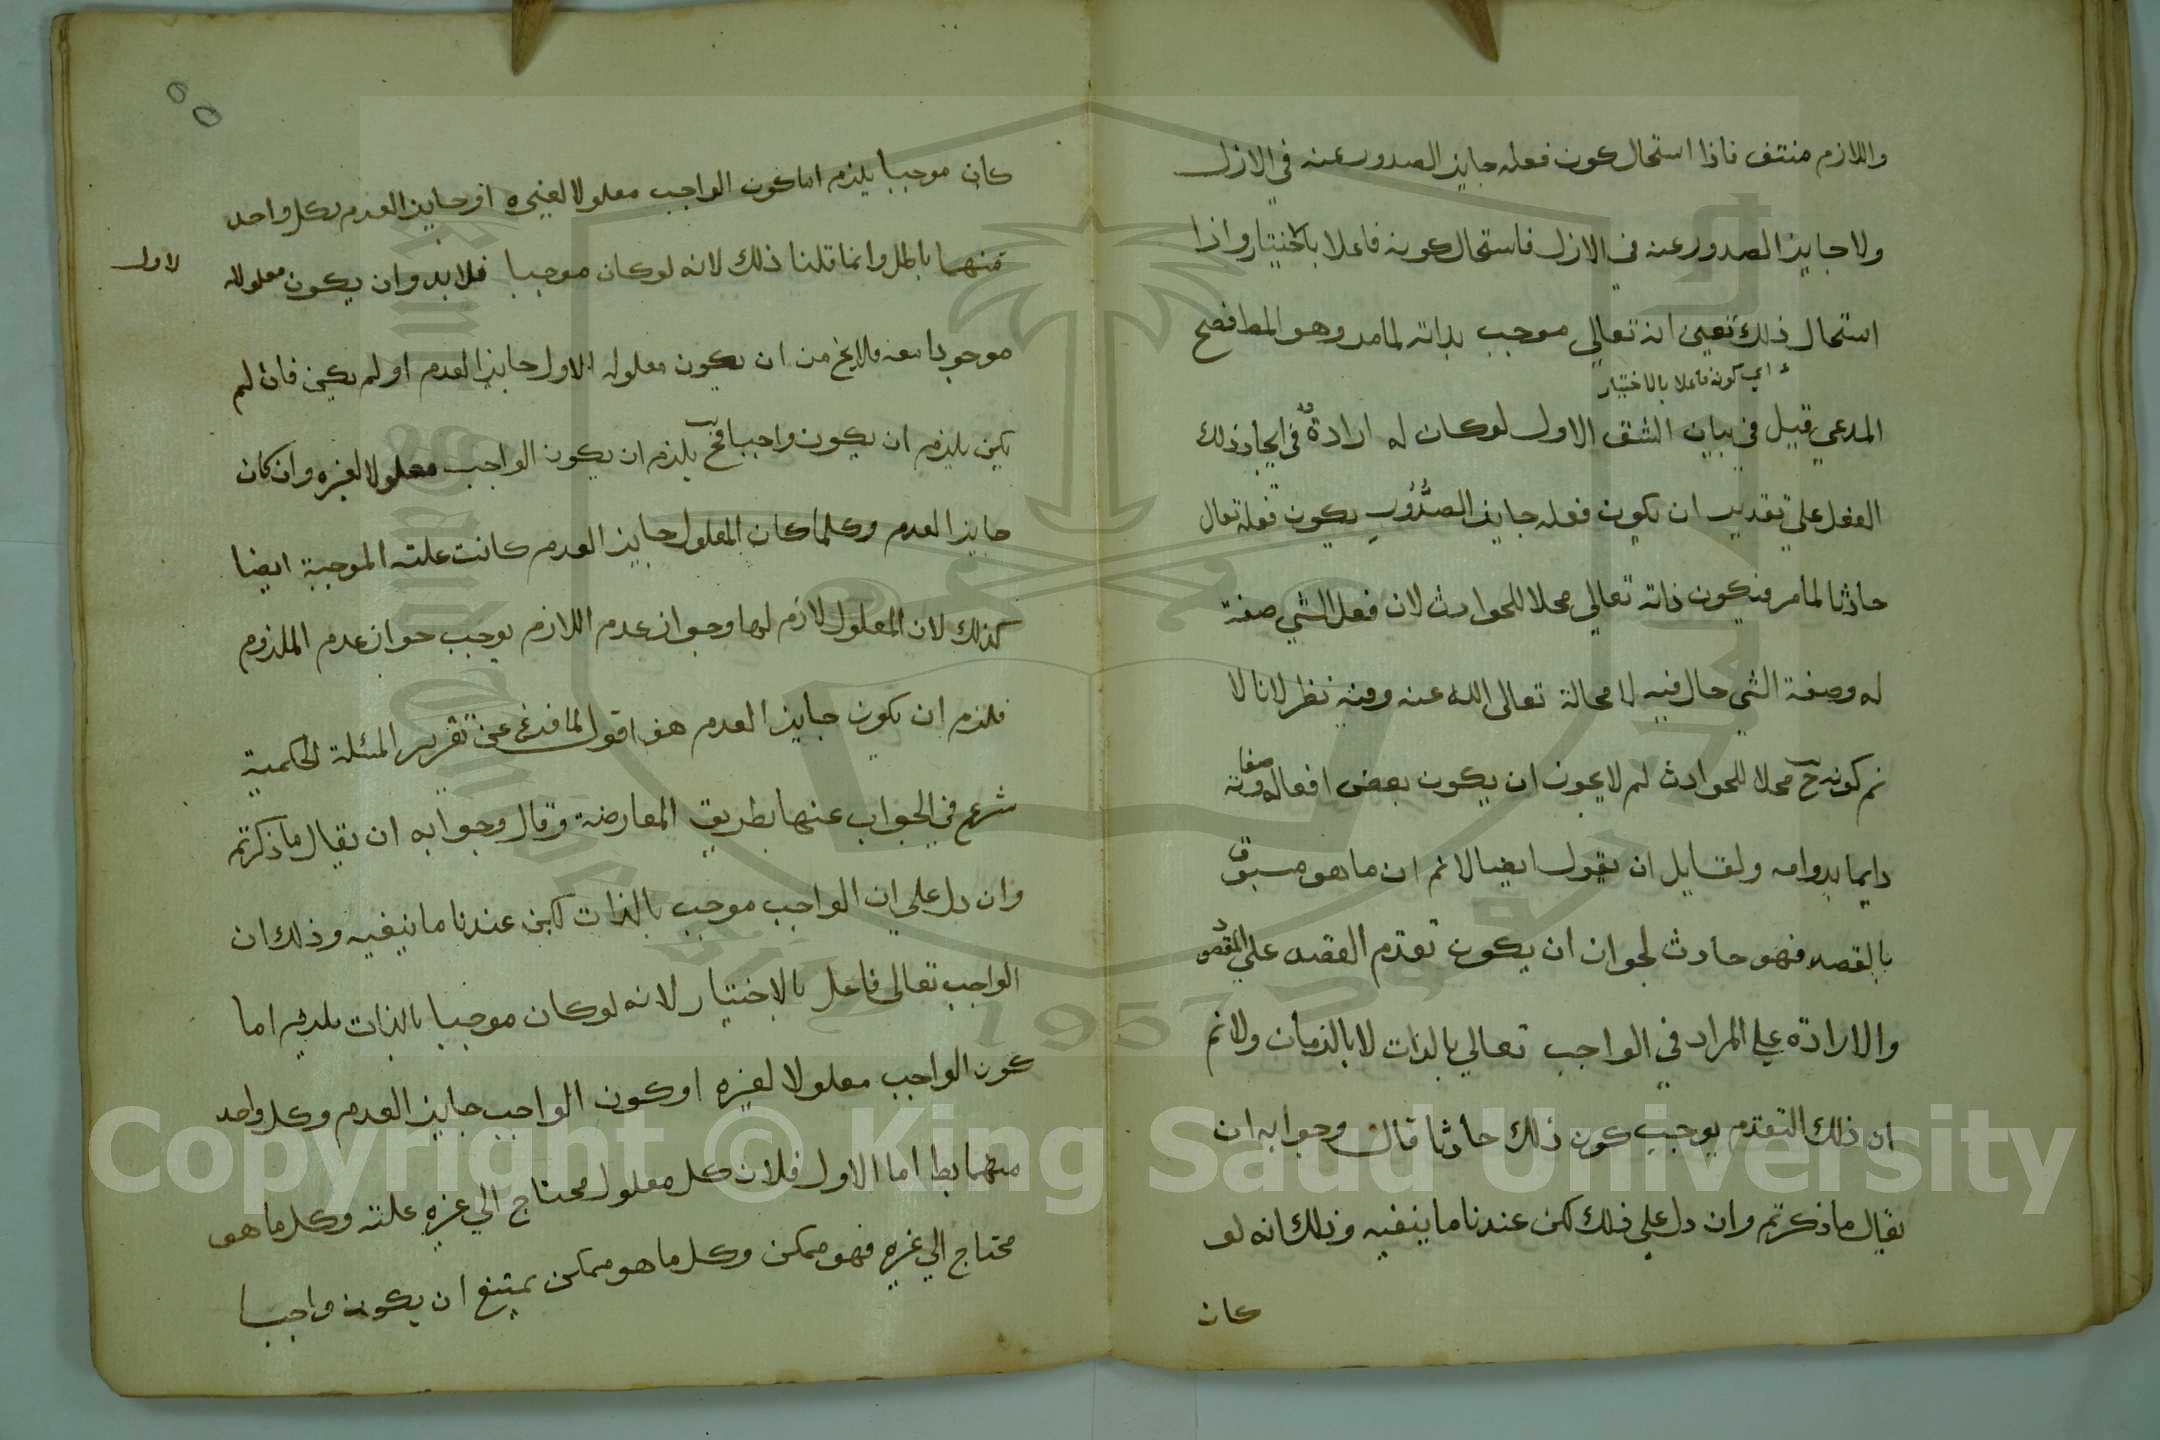 واللازم منتف فاذا استحال كون فعله جايز الصدور عنه في الازل
ولا جايز الصدور عنه في الازل فاستحال كونه فاعلا بالاختيار واذا
استحال ذلك تعين انه تعالي موجب بذاته لما مر وهو المط فصح
اي كونه فاعلا بالاختيار
المدعي قيل في بيان الشق الاول لوكان له ارادة في ايجاد ذلك
الفعل علي تقدير ان يكون فعله جايز الصدور يكون فعله تعال
حادثا لما مر فيكون ذاته تعالي محلا للحوادث لان فعل الشي صفة
له وصفة الشي حال فيه لا محالة تعالى الله عنه وفيه نظر لانا لا
نم كونه ح محلا للحوادث لم لا يجوز ان يكون بعض افعاله وصفاته
دايما بدوامه ولقايل ان يقول ايضا لا نم ان ما هو مسبوق
بالقصد فهو حادث لجوان ان يكون تقدم القصد علي المقصود
والارادة علي المراد في الواجب تعالي بالذات لا بالزمان ولا نم
ان ذلك التقدم يوجب كون ذلك حادثا قال وجوابه ان
يقال ما ذكرتم وان دل علي ذلك لكن عندنا ما ينفيه وذلك انه لو
كان
كان موجبا يلزم اما كون الواجب معلولا لغيره او جايز العدم وكل واحد
منهما باطل وانما قلنا ذلك لانه لوكان موجبا فلا بد وان يكون معلوله
لاول
موجودا معه فلا يخ من ان يكون معلوله الاول جايز العدم او لم يكن فان لم
يكن يلزم ان يكون واجبا فح يلزم ان يكون الواجب معلولا لغيره وان كان
جايز العدم وكلما كان المعلول جايز العدم كانت علته الموجبة ايضا
كذلك لان المعلول لازم لها وجواز عدم اللازم يوجب جواز عدم الملزوم
فلزم ان يكون جايز العدم هف اقول لما فرغ عن تقرير المسئلة الحكمية
شرع في الجواب عنها بطريق المعارضة وقال وجوابه ان يقال ما ذكرتم
وان دل علي ان الواجب موجب بالذات لكن عندنا ما ينفيه وذلك ان
الواجب تعالى فاعل بالاختيار لانه لوكان موجبا بالذات يلزم اما
كون الواجب معلولا لغيره او كون الواجب جايز العدم وكل واحد
منهما بط اما الاول فلان كل معلول محتاج الي غيره علته وكل ما هو
محتاج الي غيره فهو ممكن وكل ما هو ممكن يمتنع ان يكون واجبا
Copyright © King Saud University
1957